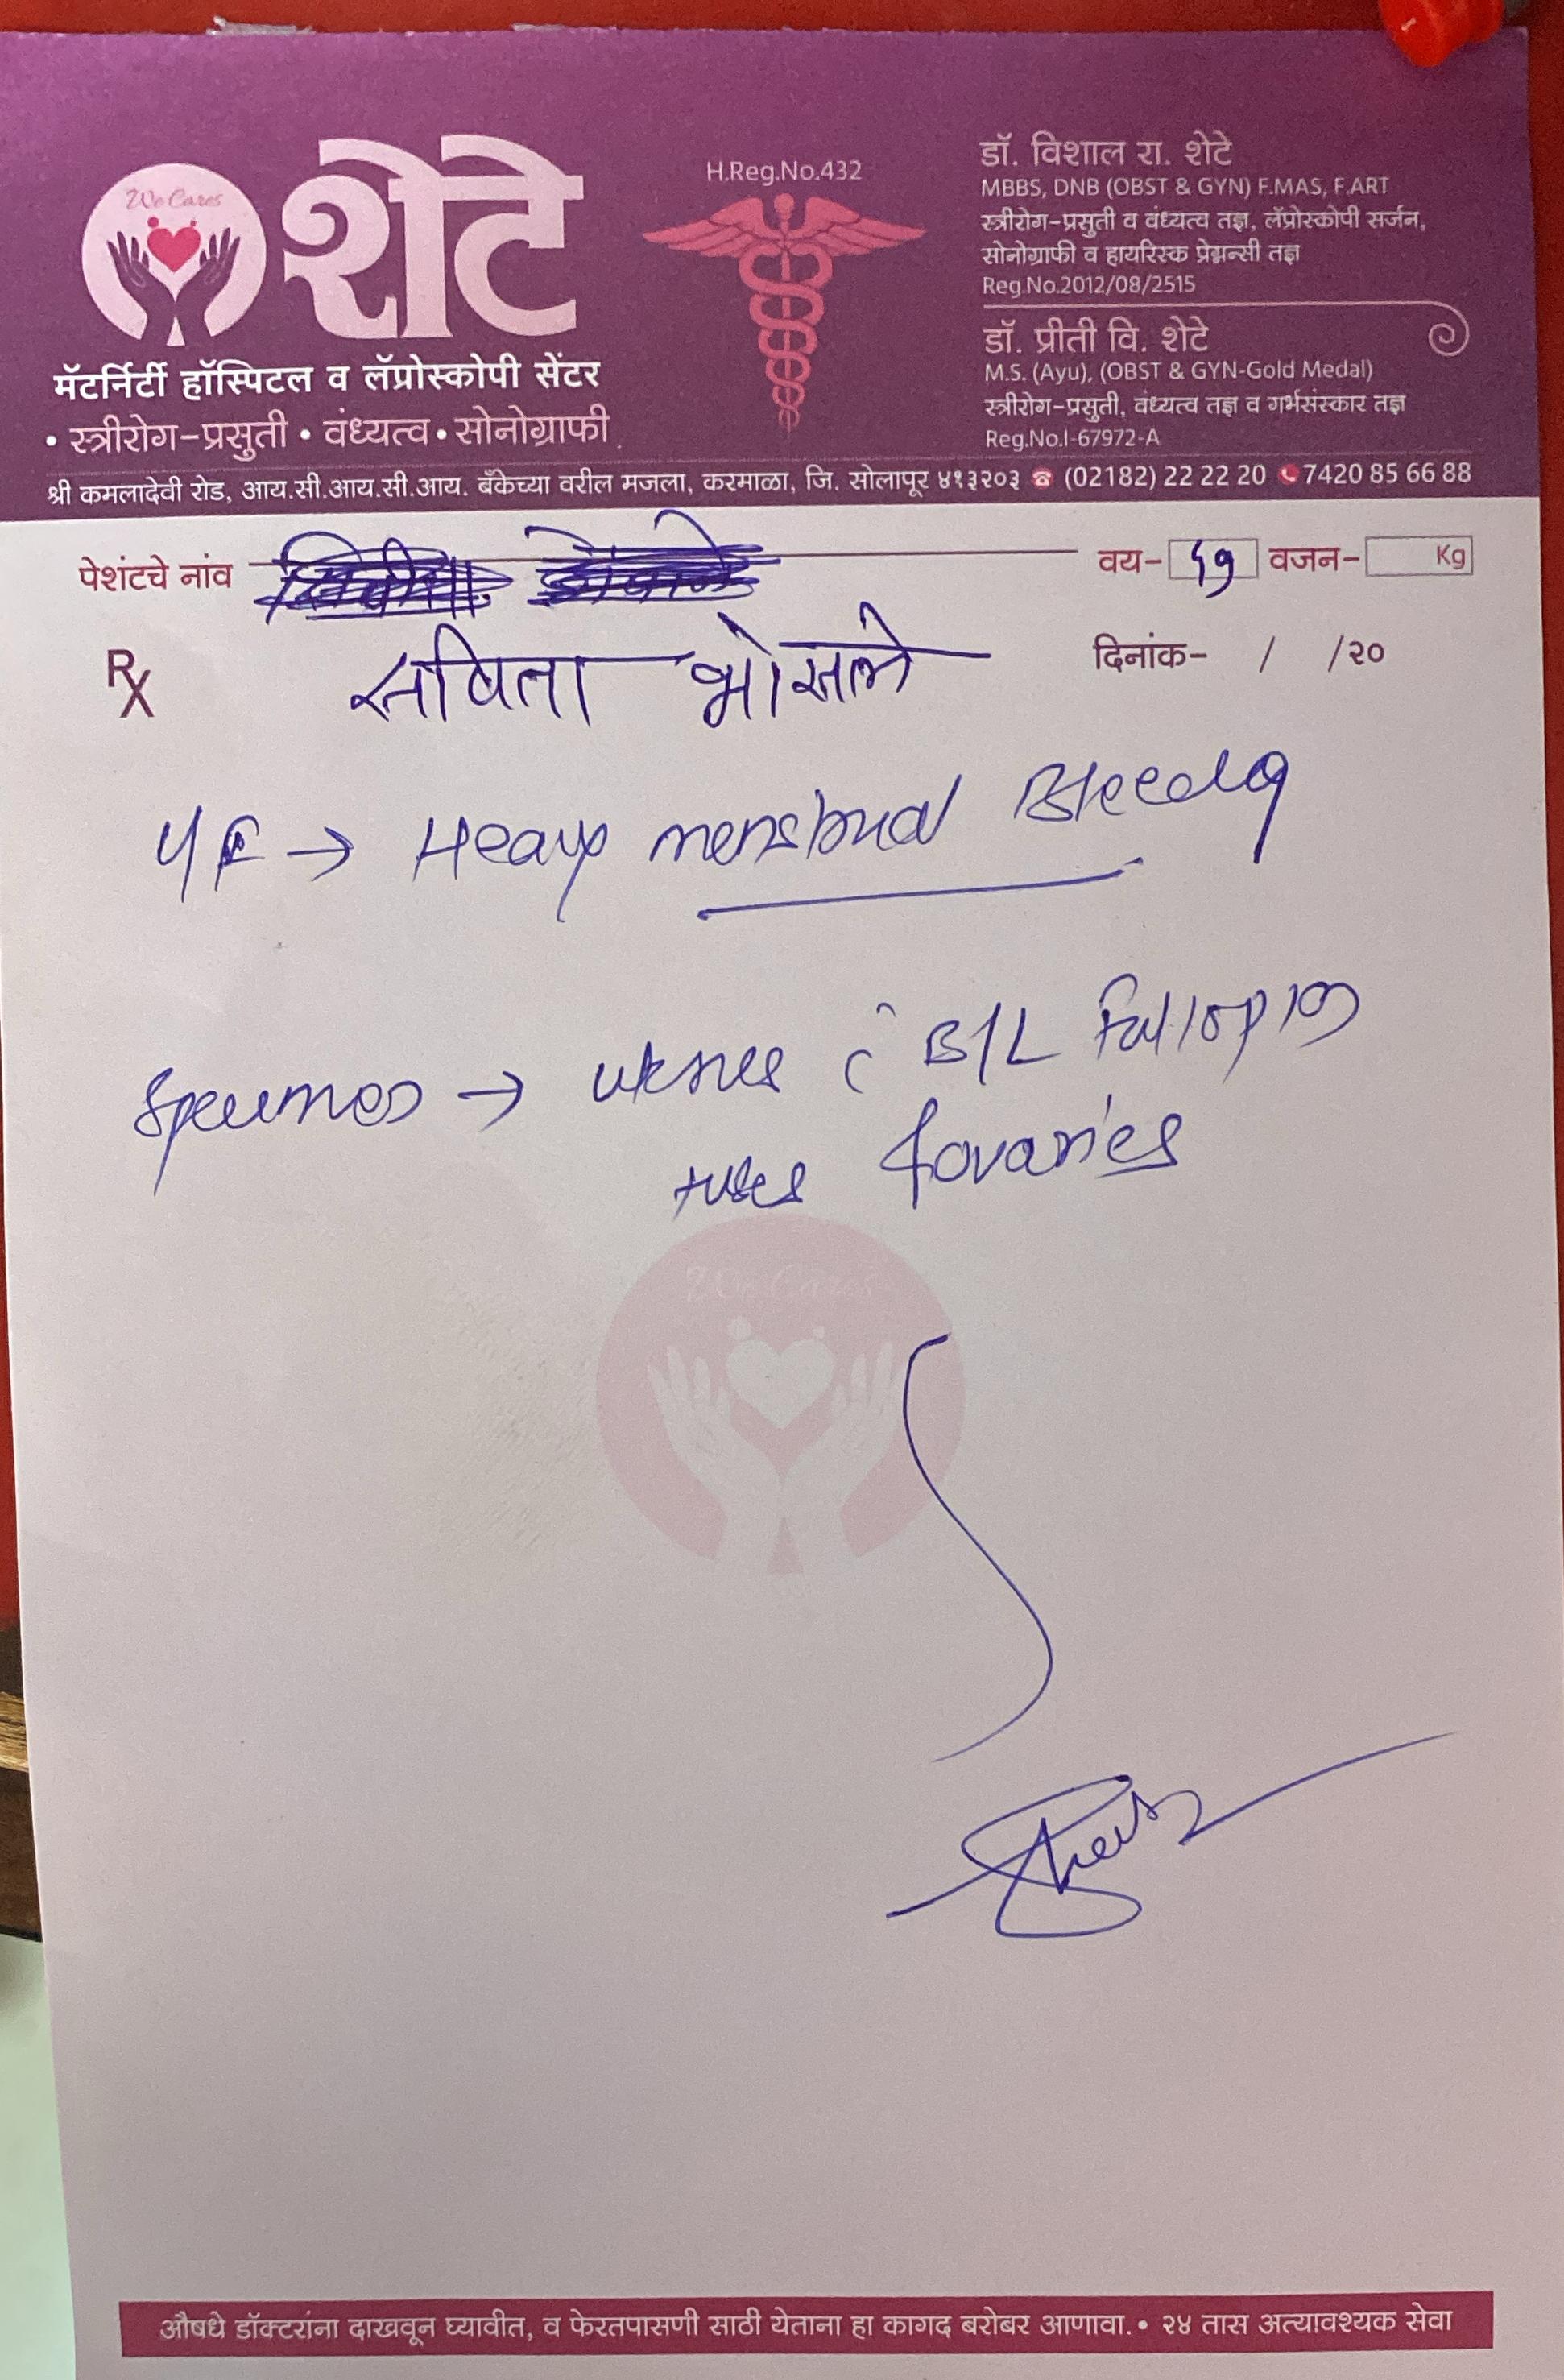 We Cares
शेटे
मॅटर्निटी हॉस्पिटल व लॅप्रोस्कोपी सेंटर
• स्त्रीरोग-प्रसुती • वंध्यत्व • सोनोग्राफी
H.Reg.No.432
डॉ. विशाल रा. शेटे
MBBS, DNB (OBST & GYN) F.MAS, F.ART
स्त्रीरोग-प्रसुती व वंध्यत्व तज्ञ, लॅप्रोस्कोपी सर्जन,
सोनोग्राफी व हायरिस्क प्रेग्नन्सी तज्ञ
Reg.No.2012/08/2515
डॉ. प्रीती वि. शेटे
M.S. (Ayu), (OBST & GYN-Gold Medal)
स्त्रीरोग-प्रसुती, वंध्यत्व तज्ञ व गर्भसंस्कार तज्ञ
Reg.No.I-67972-A
श्री कमलादेवी रोड, आय.सी.आय.सी.आय. बँकेच्या वरील मजला, करमाळा, जि. सोलापूर ४१३२०३ ☎ (02182) 22 22 20 7420 85 66 88
पेशंटचे नांव वय- वजन- Kg
Rx सविता भोसले दिनांक- / /२०
→ Heavy menstrual Bleeding
Specimen → uterus c̄ B/L Fallopian
tubes & ovaries
We Cares
औषधे डॉक्टरांना दाखवून घ्यावीत, व फेरतपासणी साठी येताना हा कागद बरोबर आणावा. • २४ तास अत्यावश्यक सेवा